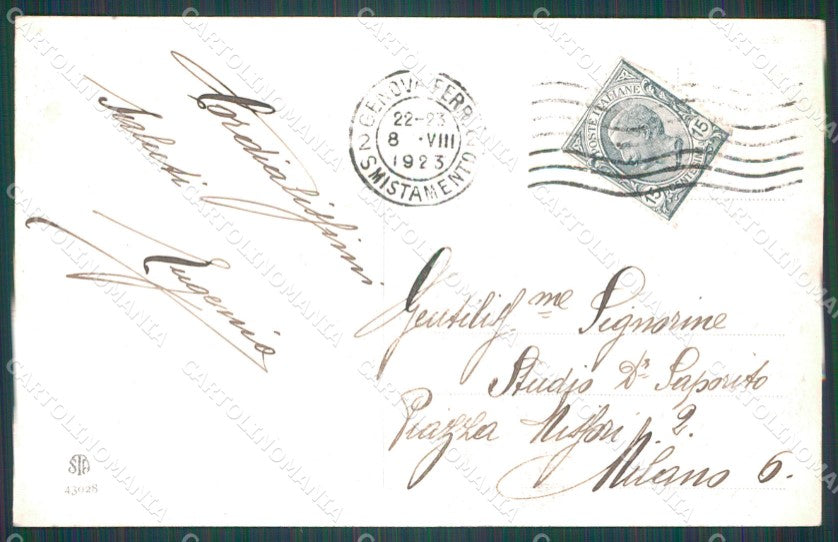 Cordialissimi
Saluti
Eugenio
GENOVA FERROVIA
22-23
8 · VIII
1923
2 SMISTAMENTO
POSTE ITALIANE
15
15
Gentiliss me Signorine
Studio Dr Saporito
Piazza Missori 2.
Milano 6.
STA
43028
CARTOLINOMANIA